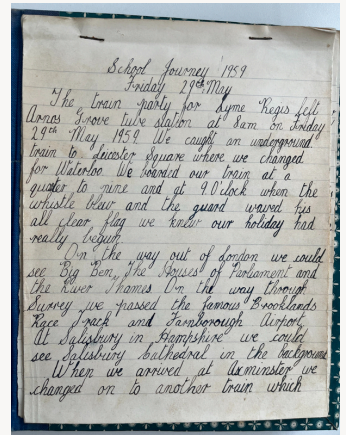 School Journey 1959
Friday 29th May
The train party for Lyme Regis left
Arnos Grove tube station at 8am on Friday
29th May 1959. We caught an underground
train to Leicester Square where we changed
for Waterloo. We boarded our train at a
quarter to nine and at 9.O'clock when the
whistle blew and the guard waved his
all clear flag we knew our holiday had
really begun.
On the way out of London we could
see Big Ben, The Houses of Parliament and
the River Thames. On the way through
Surrey we passed the famous Brooklands
Race Track and Farnborough Airport.
At Salisbury in Hampshire we could
see Salisbury Cathedral in the background.
When we arrived at Axminster we
changed on to another train which